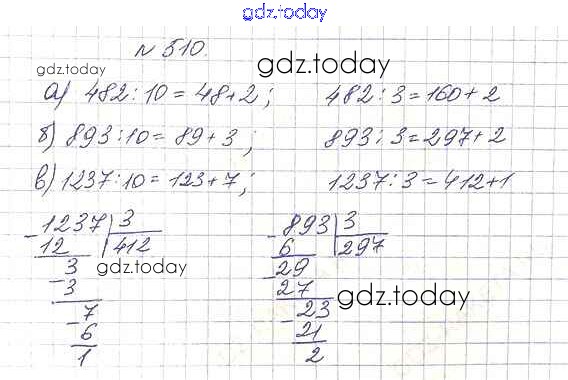 gdz.today
№ 510.
gdz.today
gdz.today
а) 482 : 10 = 48 + 2 ; 482 : 3 = 160 + 2
б) 893 : 10 = 89 + 3 ; 893 : 3 = 297 + 2
в) 1237 : 10 = 123 + 7 ; 1237 : 3 = 412 + 1
- 1237 | 3 - 893 | 3
12 412 6 297
3 - 29
gdz.today
- 3 27
gdz.today
- 7 - 23
6 21
1 2